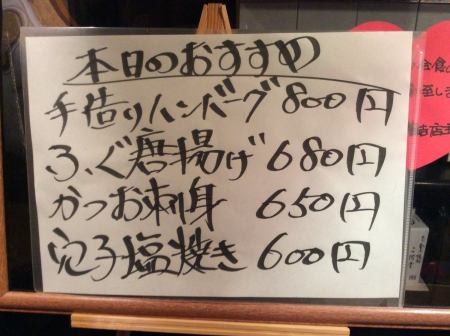 本日のおすすめ
手造りハンバーグ 800円
ふぐ唐揚げ 680円
かつお刺身 650円
穴子塩焼き 600円